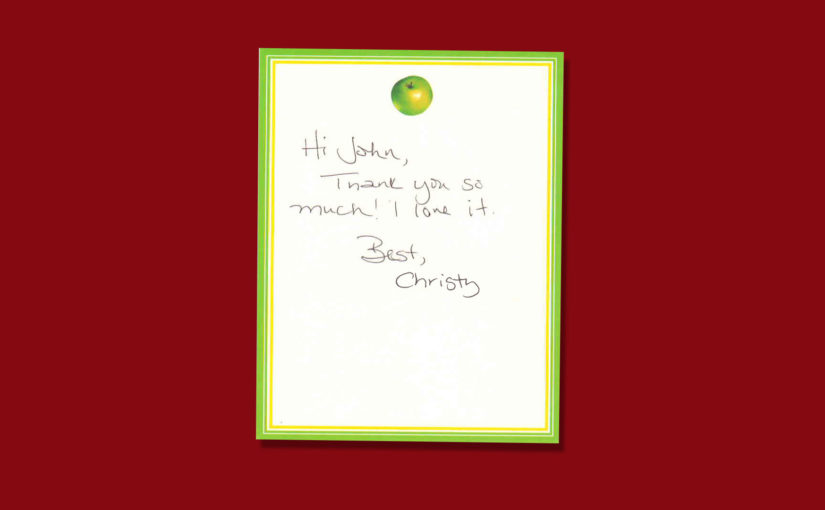 Hi John,
Thank you so
much! I love it.
Best,
Christy